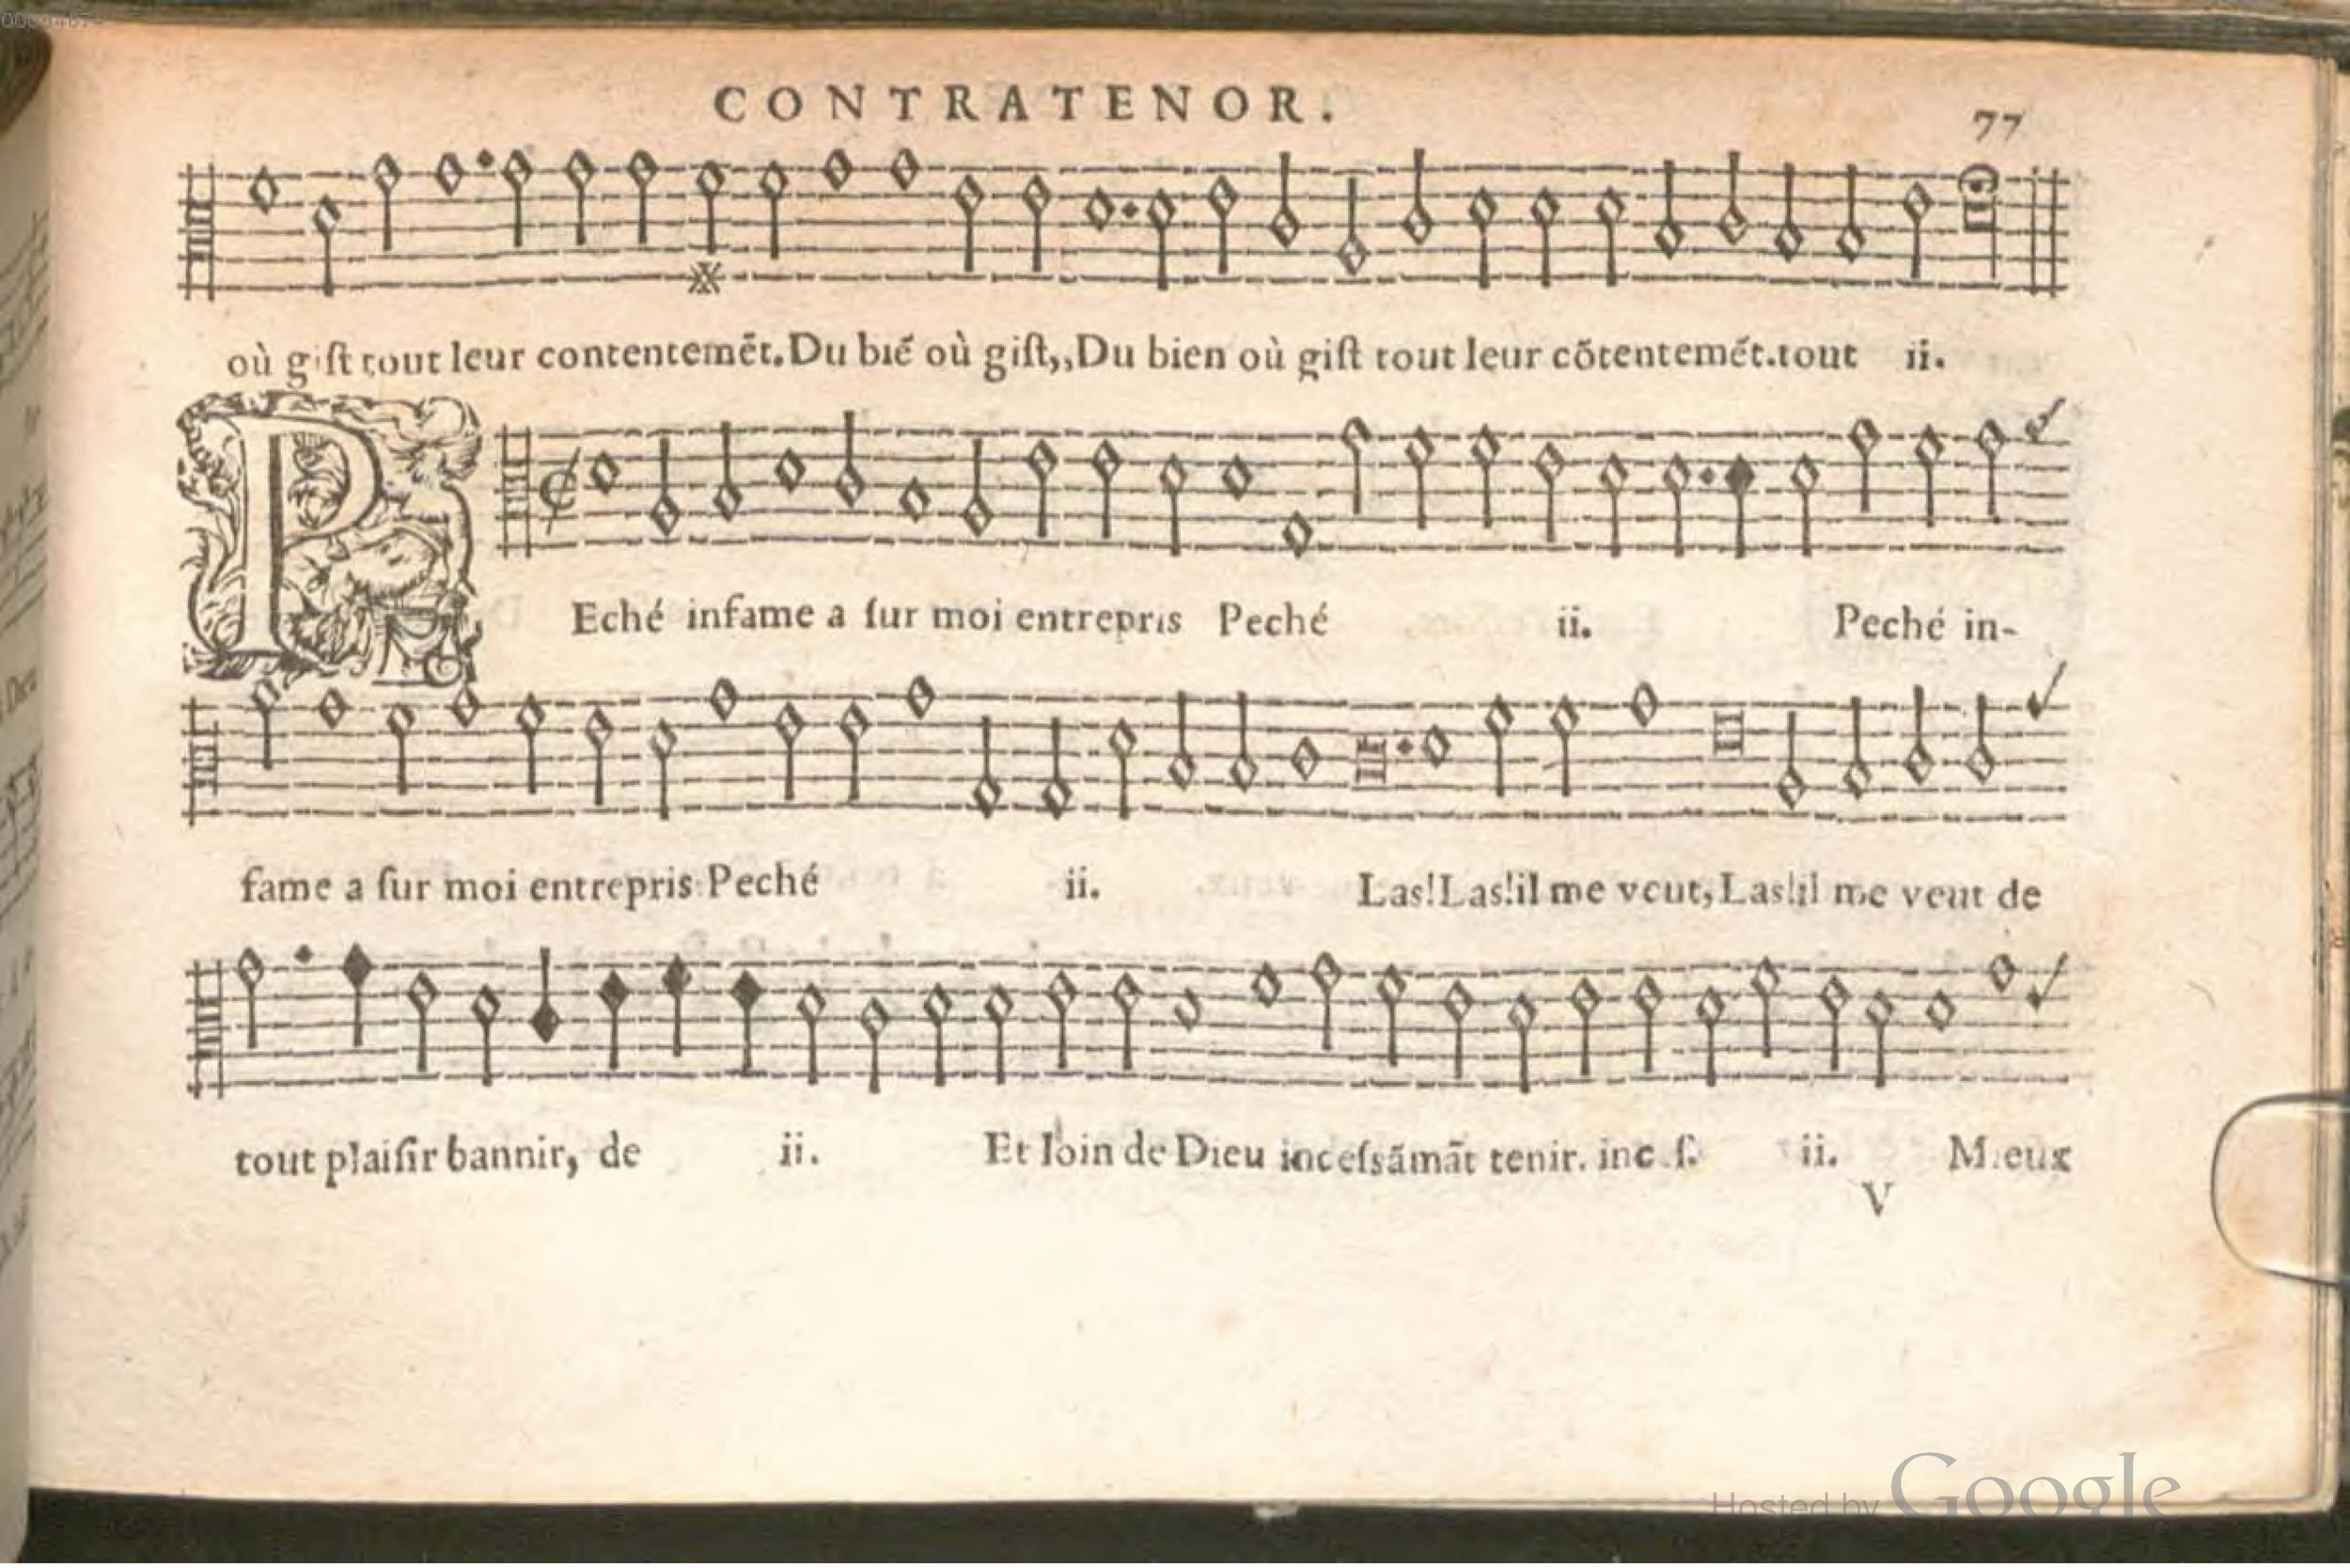 CONTRATENOR.
77
où gist tout leur contentemēt. Du biē où gist,, Du bien où gist tout leur cōtentemēt. tout ii.
PEché infame a ſur moi entrepris Peché ii. Peché in-
fame a ſur moi entrepris Peché ii. Las! Las! il me veut, Las! il me veut de
tout plaiſir bannir, de ii. Et loin de Dieu inceſsãmãt tenir. ii. Mieux
V
Hosted by Google